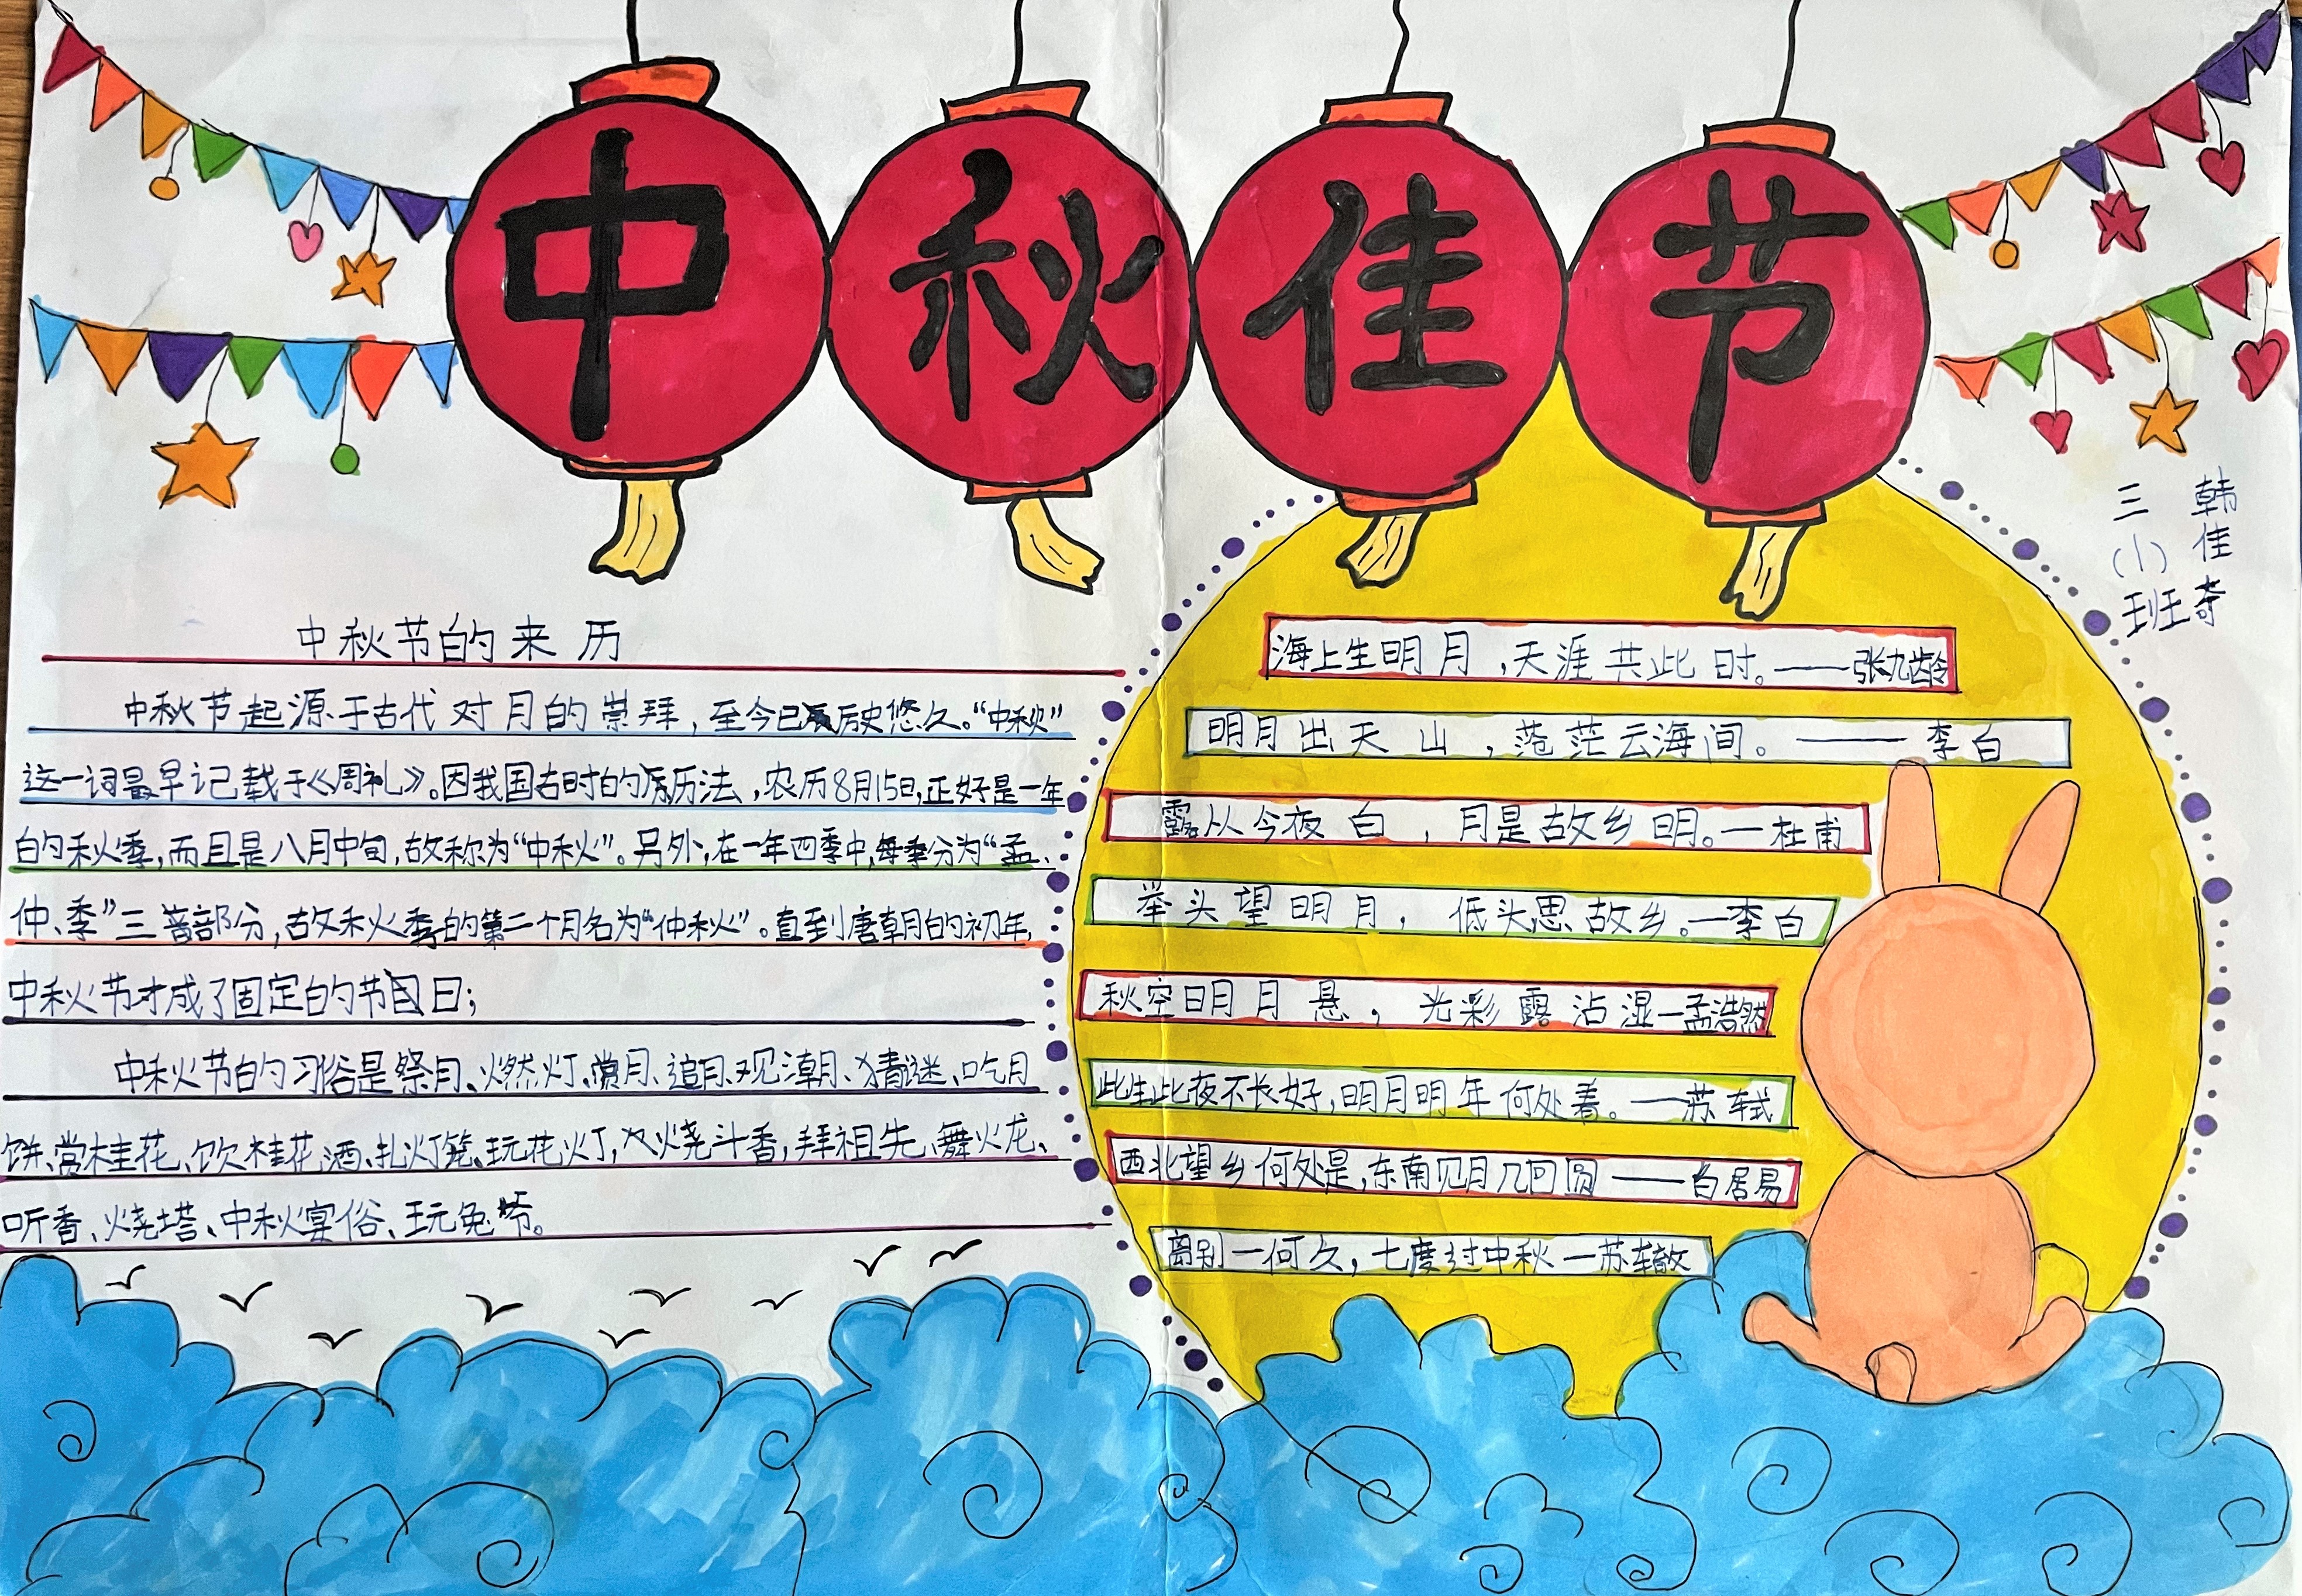 中秋佳节
三(1)班
韩佳奇
中秋节的来历
中秋节起源于古代对月的崇拜,至今已历史悠久。“中秋”
这一词最早记载于《周礼》。因我国古时的历法,农历8月15日,正好是一年
的秋季,而且是八月中旬,故称为“中秋”。另外,在一年四季中,每季分为“孟、
仲、季”三部分,故秋季的第二个月名为“仲秋”。直到唐朝的初年,
中秋节才成了固定的节日;
中秋节的习俗是祭月、燃灯、赏月、追月、观潮、猜谜、吃月
饼、赏桂花、饮桂花酒、扎灯笼、玩花灯,烧斗香,拜祖先、舞火龙、
听香、烧塔、中秋宴俗、玩兔爷。
海上生明月,天涯共此时。——张九龄
明月出天山,茫云海间。——李白
露从今夜白,月是故乡明。—杜甫
举头望明月,低头思故乡。—李白
秋空明月悬,光彩露沾湿—孟浩然
此生此夜不长好,明月明年何处看。—苏轼
西北望乡何处是,东南见月几回圆——白居易
离别一何久,七度过中秋—苏辙